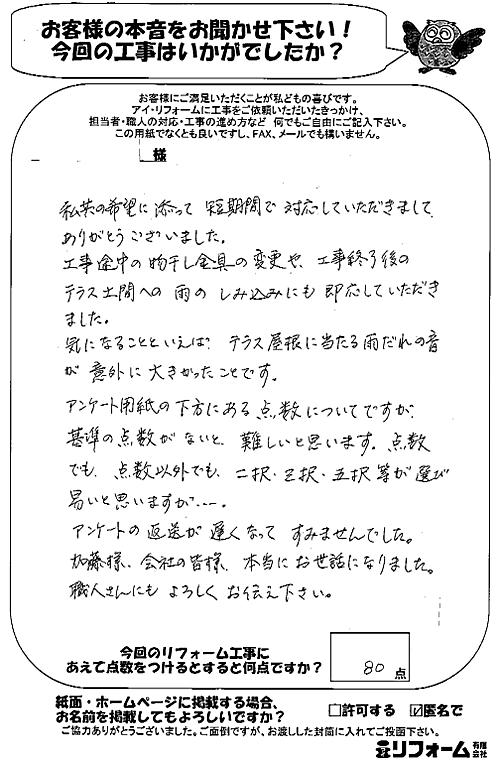 お客様の本音をお聞かせ下さい!
今回の工事はいかがでしたか?
お客様にご満足いただくことが私どもの喜びです。
アイ・リフォームに工事をご依頼いただいたきっかけ、
担当者・職人の対応・工事の進め方など 何でもご自由にご記入下さい。
この用紙でなくとも良いですし、FAX、メールでも構いません。
様
私共の希望に添って 短期間で 対応していただきまして
ありがとうございました。
工事途中の物干し金具の変更や、工事終了後の
テラス土間への 雨の しみ込みにも 即応していただき
ました。
気になることといえば? テラス屋根に当たる雨だれの音
が 意外に 大きかったことです。
アンケート用紙の下方にある点数についてですが、
基準の点数がないと 難しいと思います。点数
でも、点数以外でも、二択・三択・五択等が選び
易いと思いますが…。
アンケートの返送が遅くなって すみませんでした。
加藤様、会社の皆様、本当にお世話になりました。
職人さんにも よろしく お伝え下さい。
今回のリフォーム工事に
あえて点数をつけるとすると何点ですか? 80 点
紙面・ホームページに掲載する場合、
お名前を掲載してもよろしいですか? □許可する ☑匿名で
ご協力ありがとうございました。ご面倒ですが、お渡しした封筒に入れてご投函下さい。
リフォーム 有限会社